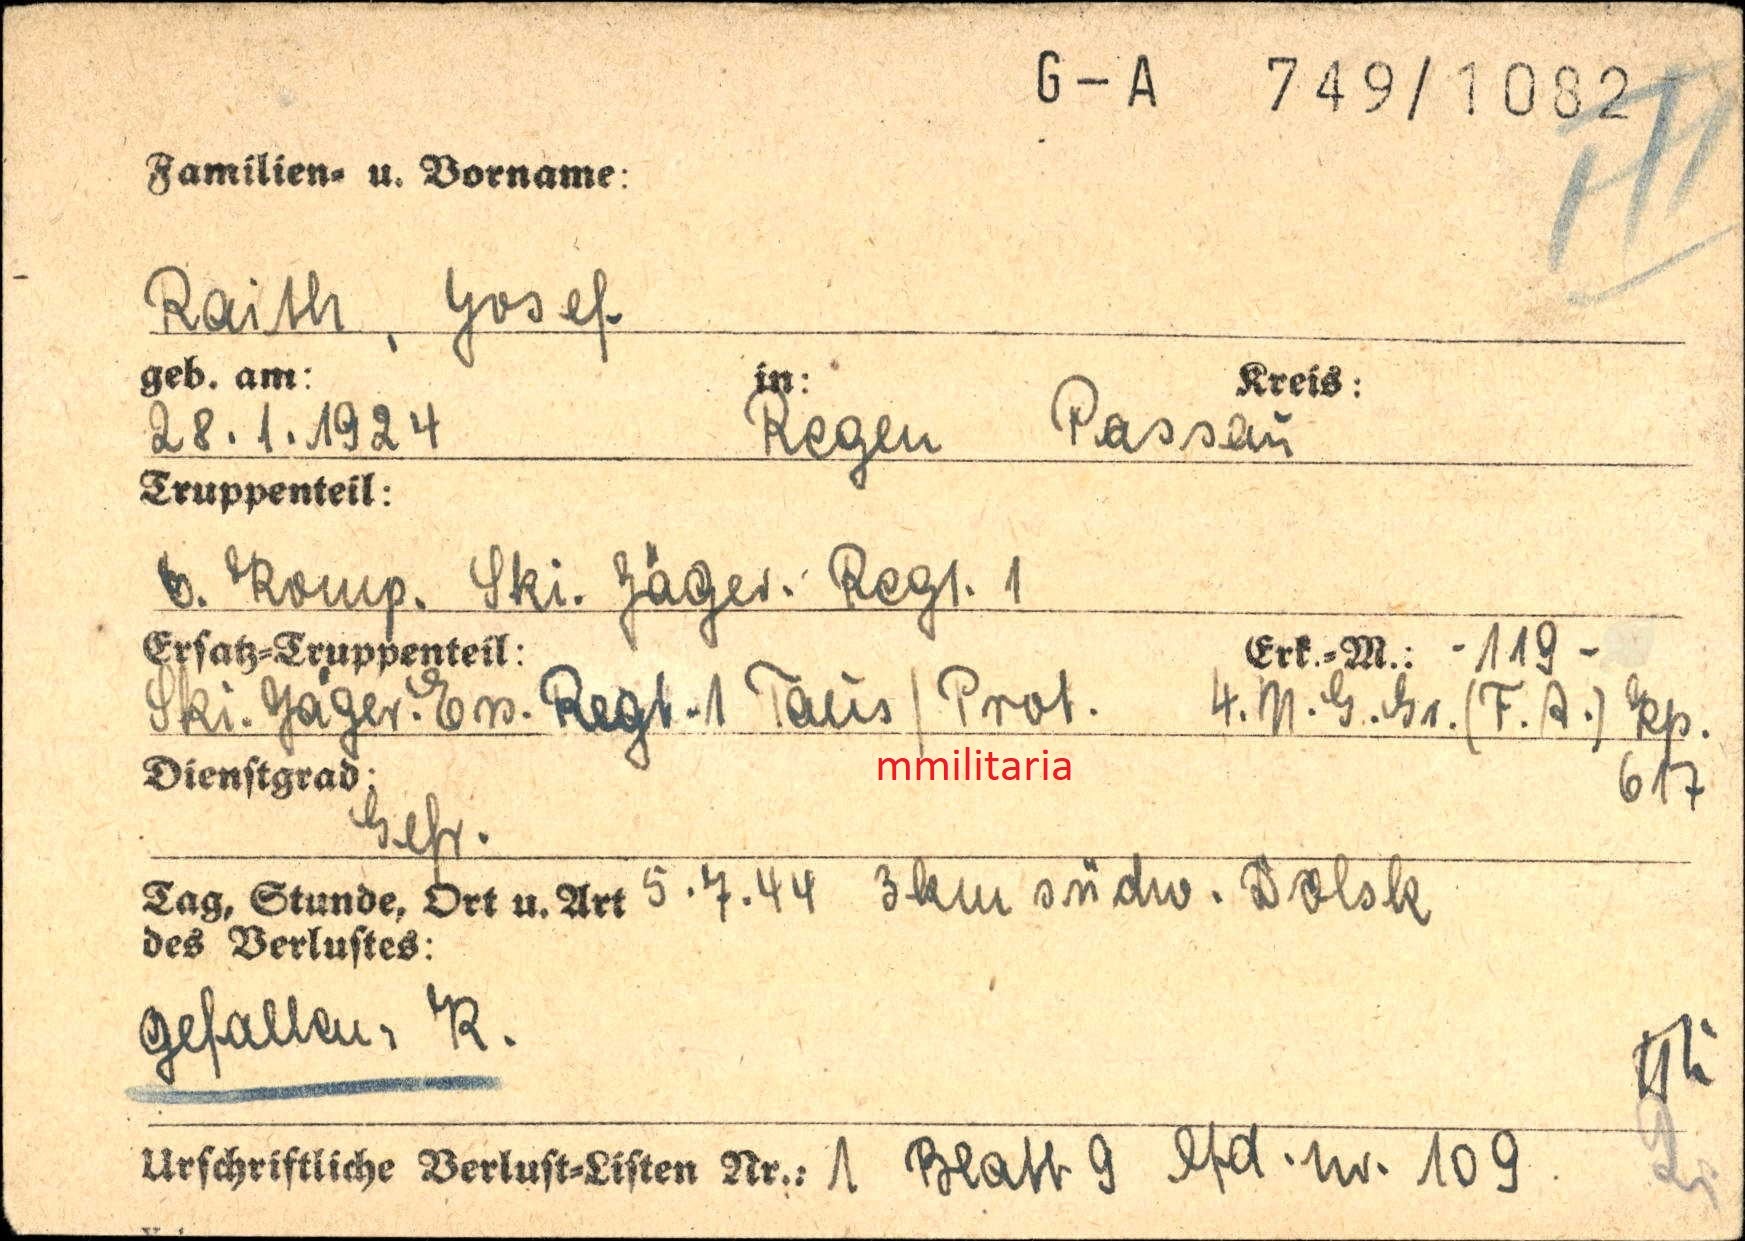 G-A 749/1082
Familien- u. Vorname:
Raith, Josef.
geb. am: in: Kreis:
28.1.1924 Regen Passau
Truppenteil:
6. Komp. Ski. Jäger. Regt. 1
Ersatz-Truppenteil: Erk.-M.: -119-
Ski. Jäger. Ers. Regt. 1 Taus / Prot. 4. N.G.Gr.(F.A.) Kp.
mmilitaria
617
Dienstgrad:
Gefr.
Tag, Stunde, Ort u. Art 5.7.44 3km südw. Dolsk
des Verlustes:
gefallen, K.
Urschriftliche Verlust-Listen Nr.: 1 Blatt 9 lfd. Nr. 109